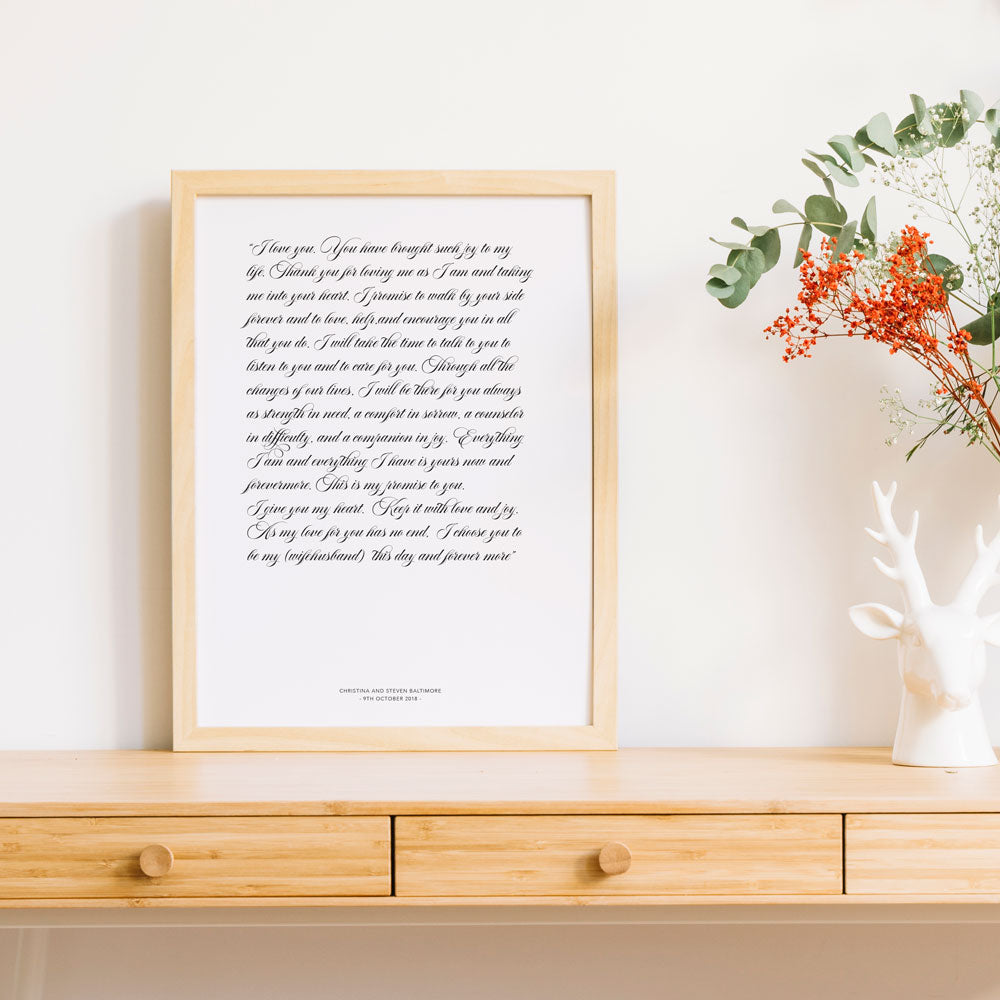 “I love you. You have brought such joy to my
life. Thank you for loving me as I am and taking
me into your heart. I promise to walk by your side
forever and to love, help,and encourage you in all
that you do. I will take the time to talk to you to
listen to you and to care for you. Through all the
changes of our lives. I will be there for you always
as strength in need, a comfort in sorrow, a counselor
in difficulty, and a companion in joy. Everything
I am and everything I have is yours now and
forevermore. This is my promise to you.
I give you my heart. Keep it with love and joy.
As my love for you has no end. I choose you to
be my (wifehusband) this day and forever more”
CHRISTINA AND STEVEN BALTIMORE
- 9TH OCTOBER 2018 -